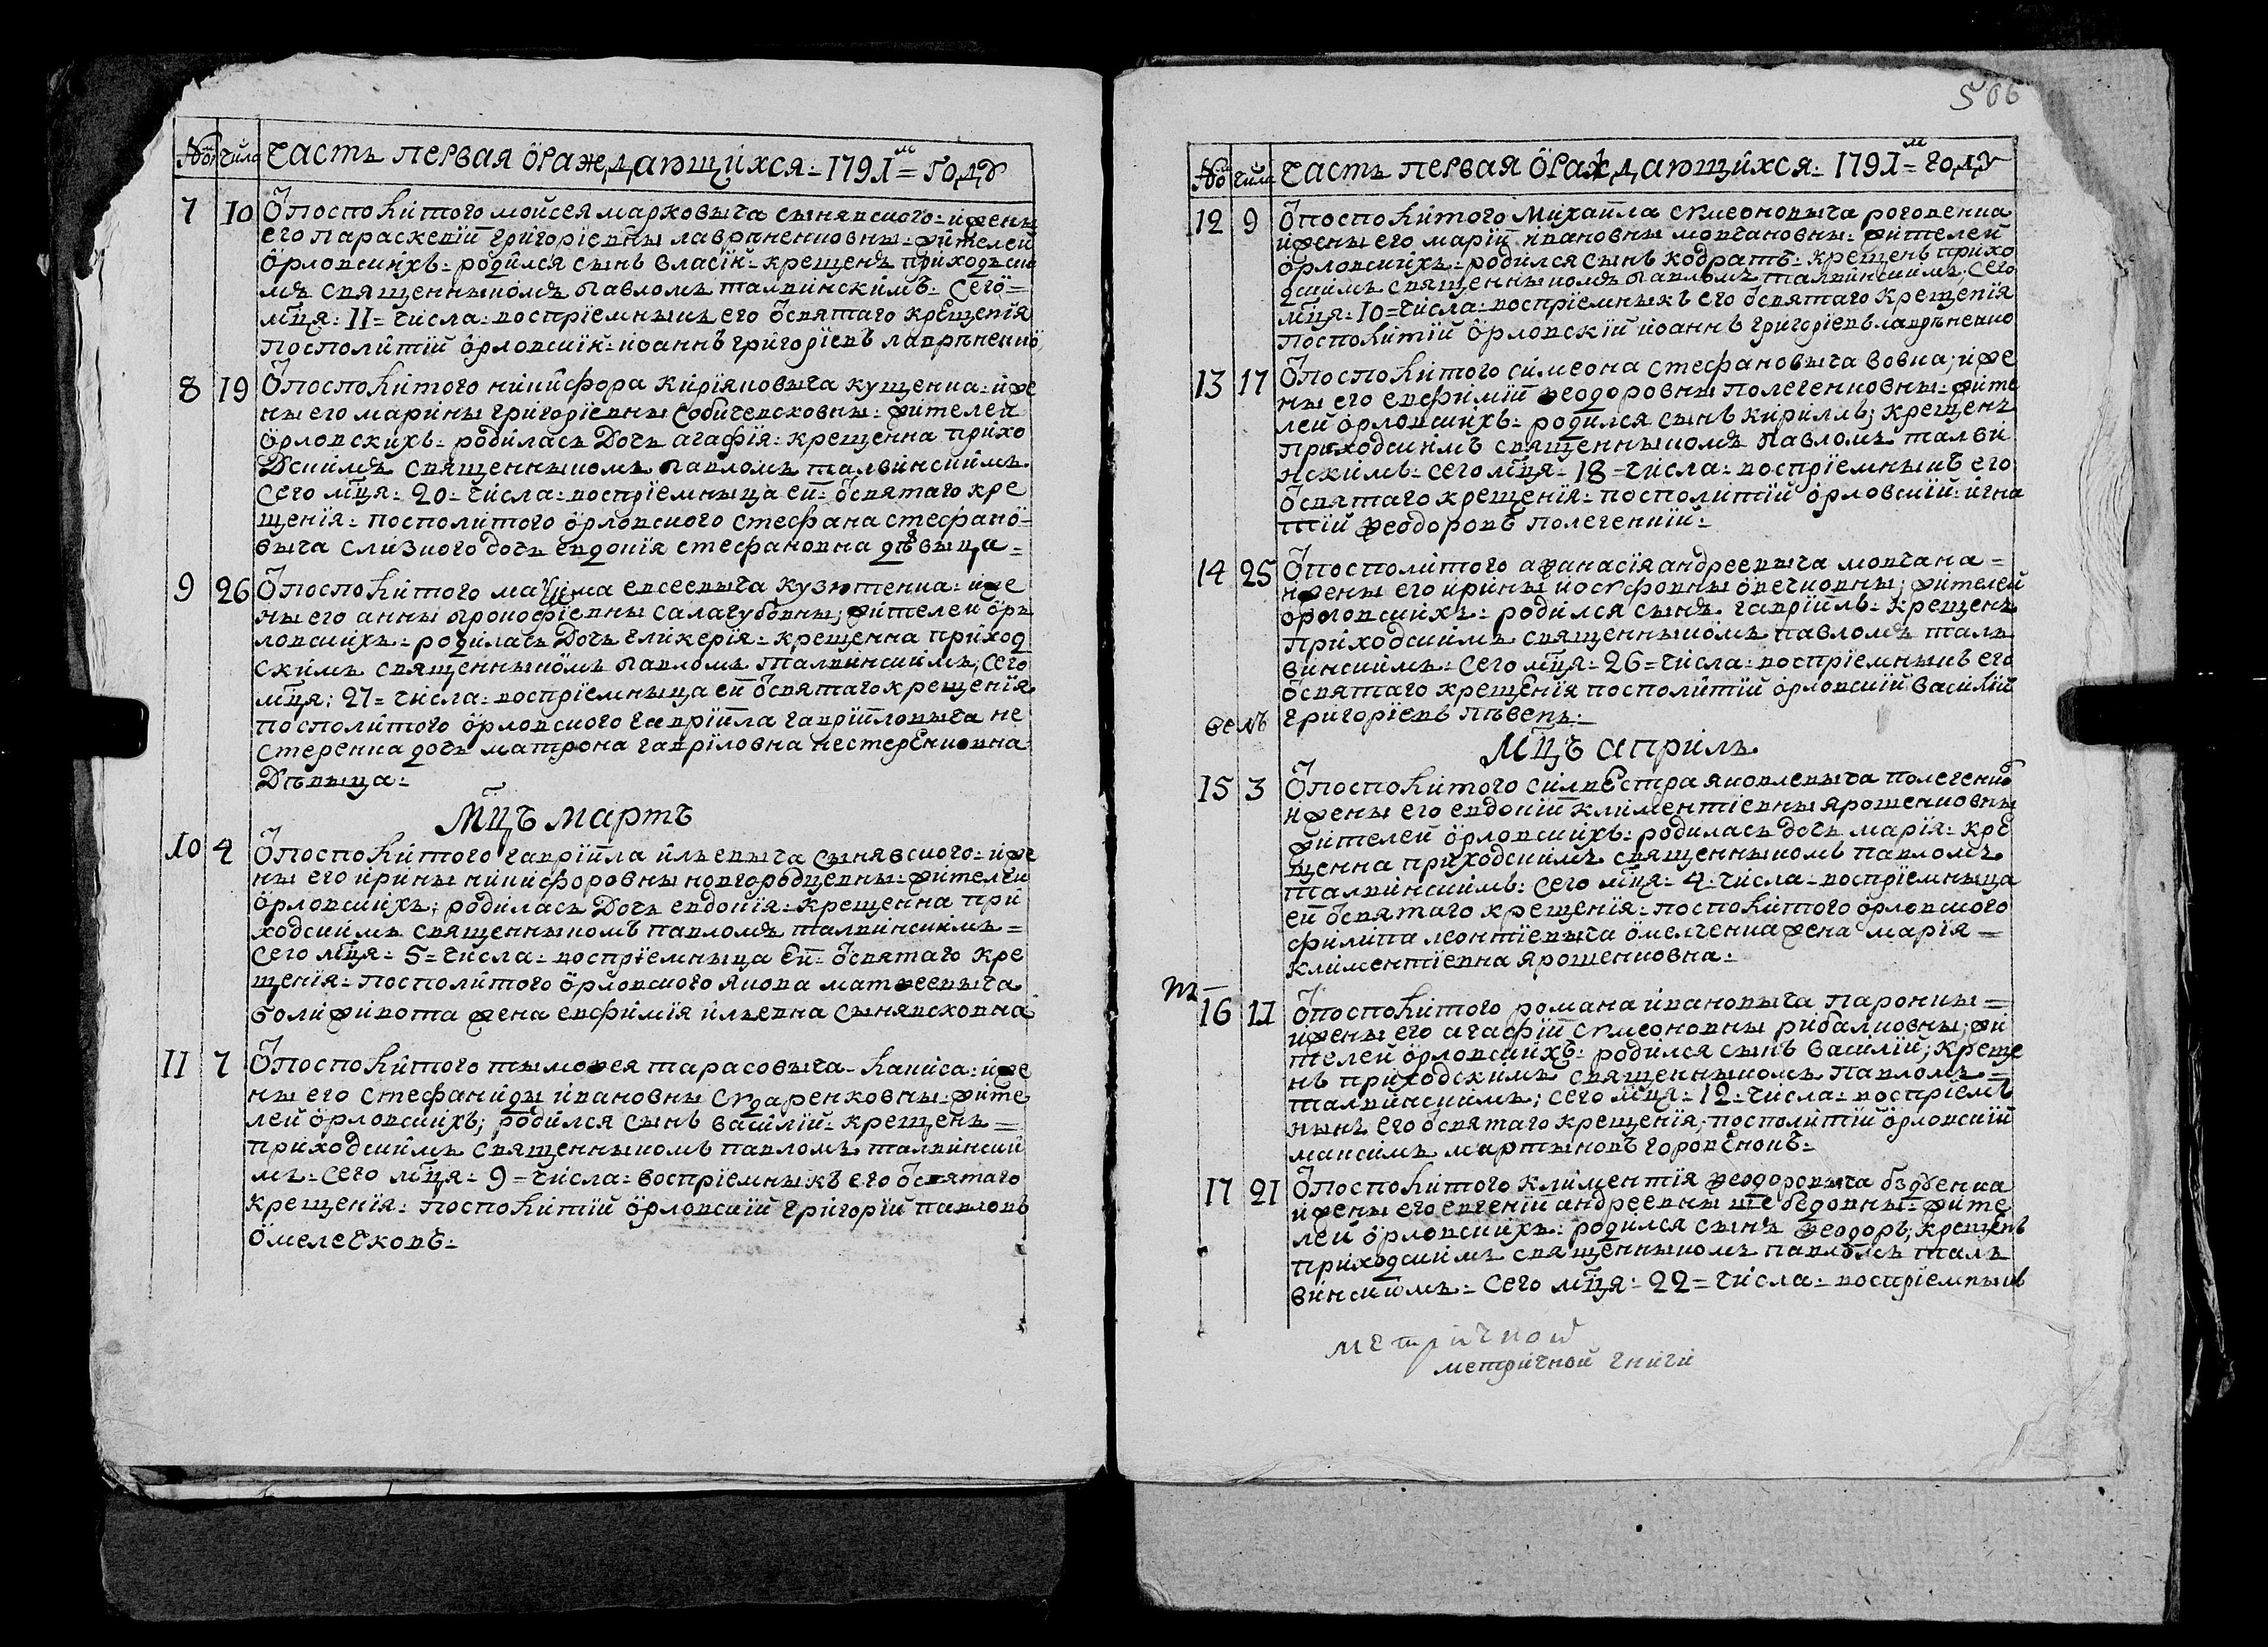 № числа часть первая ораждающихся: 1791м= году
7 10 Ѿ посполитого мойсея марковыча сынявского: и жены
его параскевий григоріевны лаврѣненковны: жителей
орловскихъ: родился сынъ власій: крещенъ приходски
мъ священныкомъ павломъ талвинскимъ: сего=
мⷭ҇ця: 11= числа: воспріемныкъ его ѿ святаго крещенія
посполитій орловскій: иоаннъ григоріевъ лаврѣненко
8 19 Ѿ посполитого никифора киріяковыча кущенка: и же
ны его марины григоріевны собичевсковны: жителей
орловскихъ: родилась дочь агафія: крещенна прихо
дскимъ священныкомъ павломъ талвинскимъ
сего мⷭ҇ця: 20= числа: воспріемныца ей: ѿ святаго кре
щенія: посполитого орловского стефана стефано=
выча слизкого дочь евдокія стефановна дѣвыца=
9 26 Ѿ посполитого маѯима евсеевыча кузютенка: и же
ны его анны прокофіевны салагубовны; жителей ор
ловскихъ: родилась дочь гликерія: крещенна приход
скимъ священныкомъ павломъ талвинскимъ; сего
мⷭ҇ця: 27= числа: воспріемныца ей ѿ святаго крещенія
посполитого орловского гавріила гавріиловыча не
стеренка дочь матрона гавріловна нестеренковна
дѣвыца:
Мⷭ҇цъ мартъ
10 4 Ѿ посполитого гавріила ильевыча сынявского: и же
ны его ирины никифоровны новгородцевны: жителей
орловскихъ; родилась дочь евдокія: крещенна при
ходскимъ священныкомъ павломъ талвинскимъ=
сего мⷭ҇ця: 5= числа: воспріемныца ей: ѿ святаго кре
щенія: посполитого орловского якова матѳеевыча
болиживота жена евфимія ильевна сынявсковна
11 7 Ѿ посполитого тымоѳея тарасовыча каписа: и же
ны его стефаниды ивановны сѵдаренковны: жите
лей орловскихъ; родился сынъ василій: крещенъ=
приходскимъ священныкомъ павломъ талвински
мъ: сего мⷭ҇ця: 9= числа: воспріемныкъ его ѿ святаго
крещенія: посполитій орловскій григорій павловъ
омелечковъ:
506
№ числа часть первая ораждающихся: 1791м= году
12 9 Ѿ посполитого михаила сѵмеоновыча роговенка
и жены его марій ивановны мовчановны: жителей
орловскихъ: родился сынъ кодратъ: крещенъ прихо
дскимъ священныкомъ павломъ талвинскимъ; сего
мⷭ҇ця: 10= числа: воспріемныкъ его ѿ святаго крещенія
посполитій орловскій иоаннъ григоріевъ лаврѣненко
13 17 Ѿ посполитого симеона стефановыча вовка; и же
ны его евфимій ѳеодоровны полегенковны: жите
лей орловскихъ: родился сынъ кириллъ; крещенъ
приходскимъ священныкомъ павломъ талви
нскимъ: сего мⷭ҇ця: 18= числа: воспріемныкъ его
ѿ святаго крещенія: посполитій орловскій: игна
тій ѳеодоровъ полегенкій:
14 25 Ѿ посполитого аѳанасія андреевыча мовчана=
и жены его ирины иосѵфовны овечковны; жителей
орловскихъ: родился сынъ гавріилъ: крещенъ
приходскимъ священныкомъ павломъ таль
винскимъ: сего мⷭ҇ця: 26= числа: воспріемныкъ его
ѿ святаго крещенія посполитій орловскій василій
григоріевъ пѣвень:
Мⷭ҇цъ априль
15 3 Ѿ посполитого силвестра яковлевыча полегенко
и жены его евдокій климентіевны ярошенковны
жителей орловскихъ: родилась дочь марія: кре
щенна приходскимъ священныкомъ павломъ
талвинскимъ: сего мⷭ҇ця: 4: числа: воспріемныца
ей ѿ святаго крещенія: посполитого орловского
филипа леонтіевыча омелченка жена марія=
климентіевна ярошенковна:
16 11 Ѿ посполитого романа ивановыча паронки=
и жены его агафій сѵмеоновны рибалковны; жи
телей орловскихъ: родился сынъ василій; креще
нъ приходскимъ священныкомъ павломъ=
талвинскимъ; сего мⷭ҇ця: 12: числа: воспріем
ныкъ его ѿ святаго крещенія; посполитій орловскій
максимъ мартыновъ горовенокъ:
17 21 Ѿ посполитого климентія ѳеодоровыча бздѣнка
и жены его евгеній андреевны шебедовны: жите
лей орловскихъ: родился сынъ ѳеодоръ; крещенъ
приходскимъ священныкомъ павломъ таль
винскимъ: сего мⷭ҇ця: 22= числа: воспріемныкъ
метричной
метричной книги